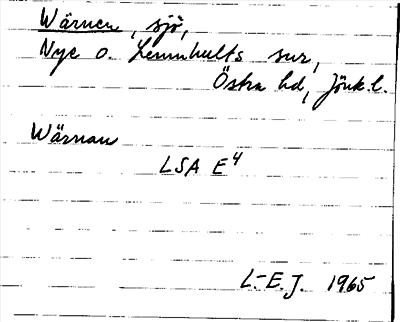 Wärnen, sjö,
Nye o. Lemnhults snr,
Östra hd, Jönk.l.
Wärnan
LSA E4
L.-E.J. 1965